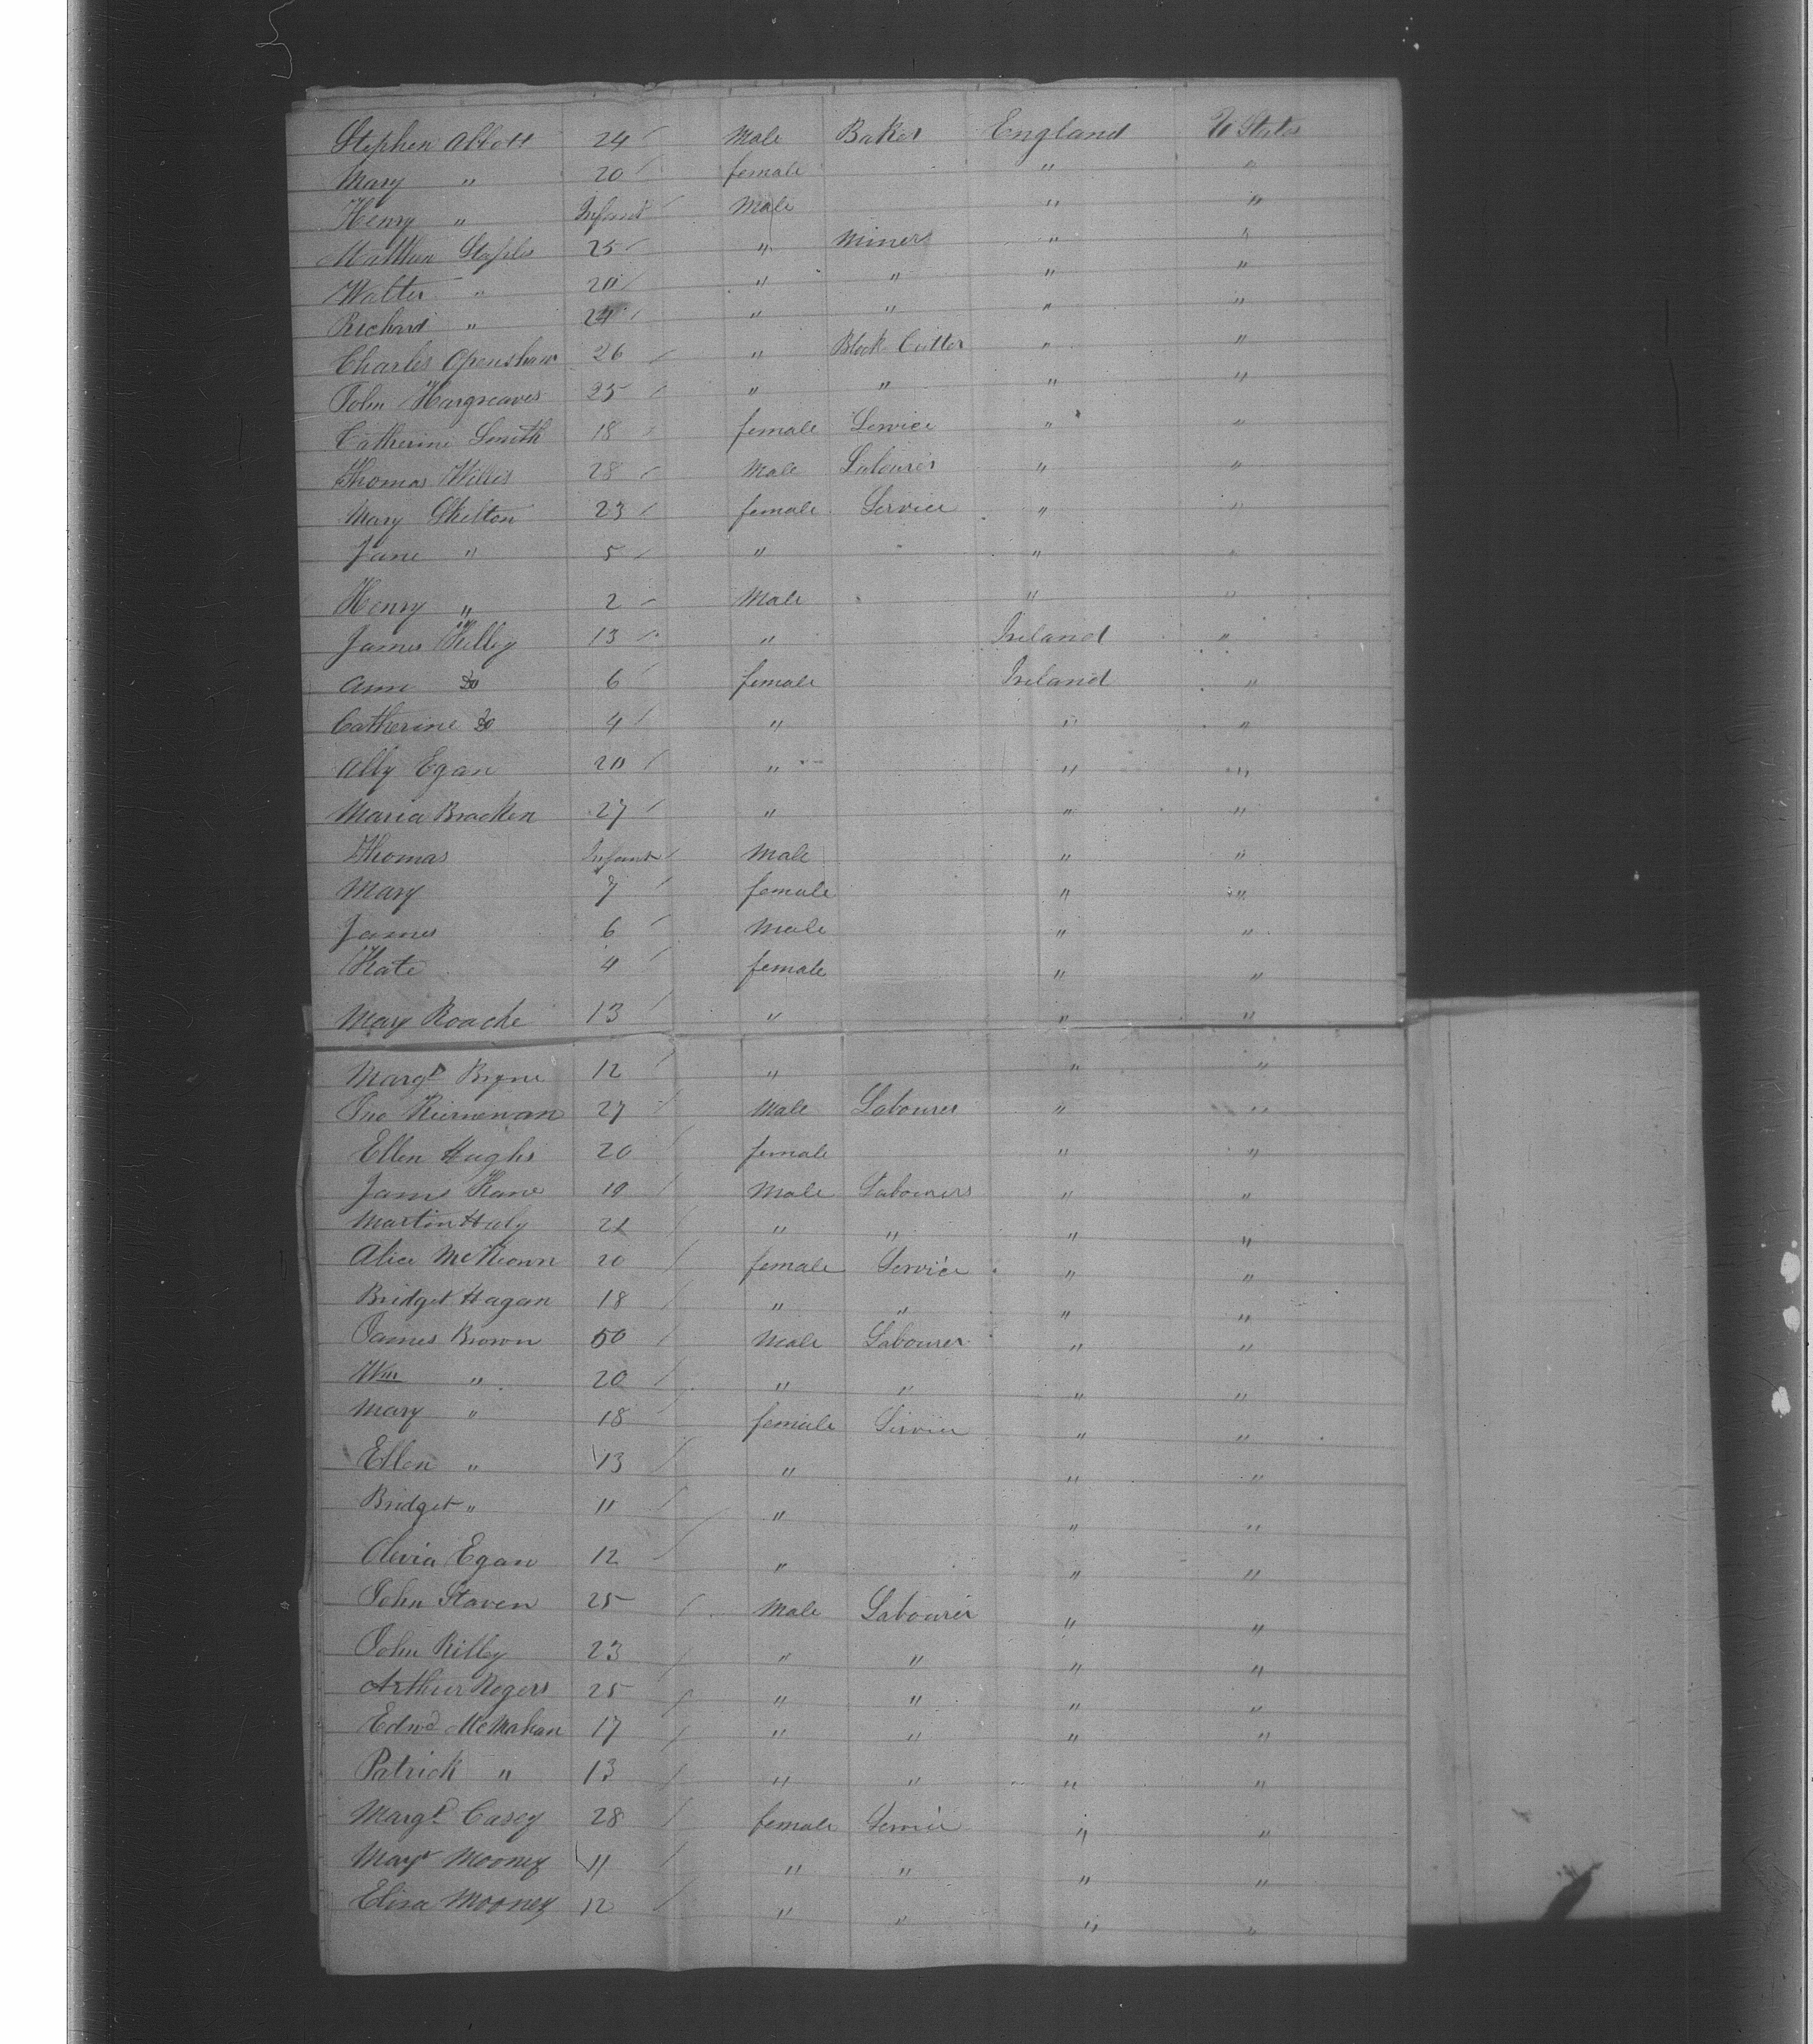 Stephen Abbott 24 Male Baker England U States
Mary " 20 female " "
Henry " Infant Male " "
Matthew Staples 25 " Miners " "
Walter " 20 " " " "
Richard " 24 " " " "
Charles Openshaw 26 " Block Cutter " "
John Hargreaves 25 " " " "
Catherine Smith 18 female Service " "
Thomas Willis 28 Male Labourer " "
Mary Skelton 23 female Service " "
Jane " 5 " " "
Henry " 2 Male " "
James Kelley 13 " Ireland "
Ann Do 6 female Ireland "
Catherine Do 4 " " "
Ally Egan 20 " " "
Maria Bracken 27 " " "
Thomas Infant Male " "
Mary 7 female " "
James 6 Male " "
Kate 4 female " "
Mary Roache 13 " " "
Margt Bryne 12 " " "
Jno Kiernewan 27 Male Labourer " "
Ellen Hughs 20 female " "
James Kane 19 Male Labourers " "
Martin Haly 21 " " " "
Alice McKeown 20 female Service " "
Bridget Hagan 18 " " " "
James Brown 50 Male Labourer " "
Wm " 20 " " " "
Mary " 18 female Service " "
Ellen " 13 " " "
Bridget " 11 " " "
Olevia Egan 12 " " "
John Staven 25 Male Labourer " "
John Rilley 23 " " " "
Arthur Rogers 25 " " " "
Edwd McMahan 17 " " " "
Patrick " 13 " " " "
Margt Casey 28 female Service " "
Margt Mooney 11 " " " "
Eliza Mooney 12 " " " "